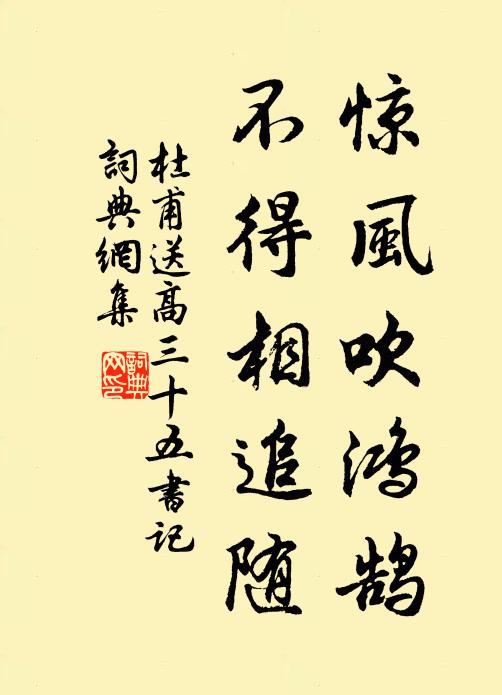 惊風吹鸿鹄
不得相追随
杜甫送高三十五書记
詞典網集
詞典网印